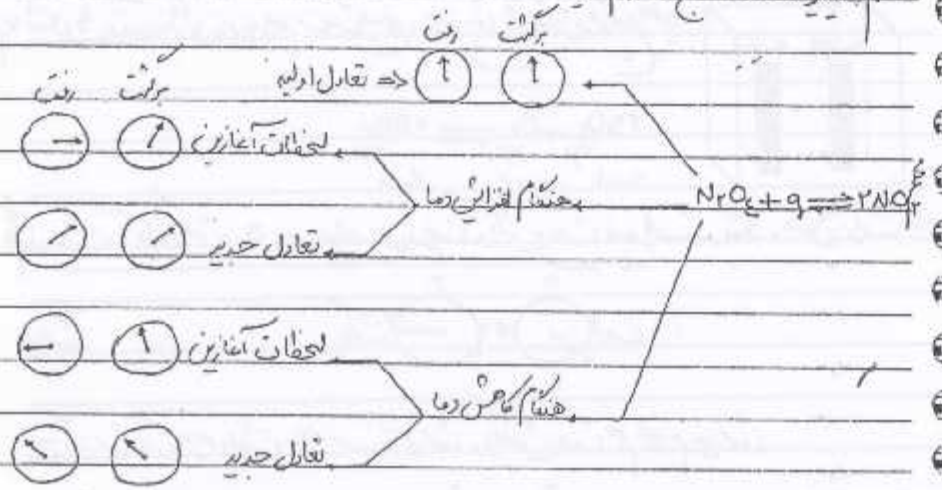 رفت برگشت
تعادل اولیه
رفت برگشت
لحظات آغازین
هنگام افزایش دما
N۲O۴ + q ⇌ ۲NO۲
تعادل جدید
لحظات آغازین
هنگام کاهش دما
تعادل جدید